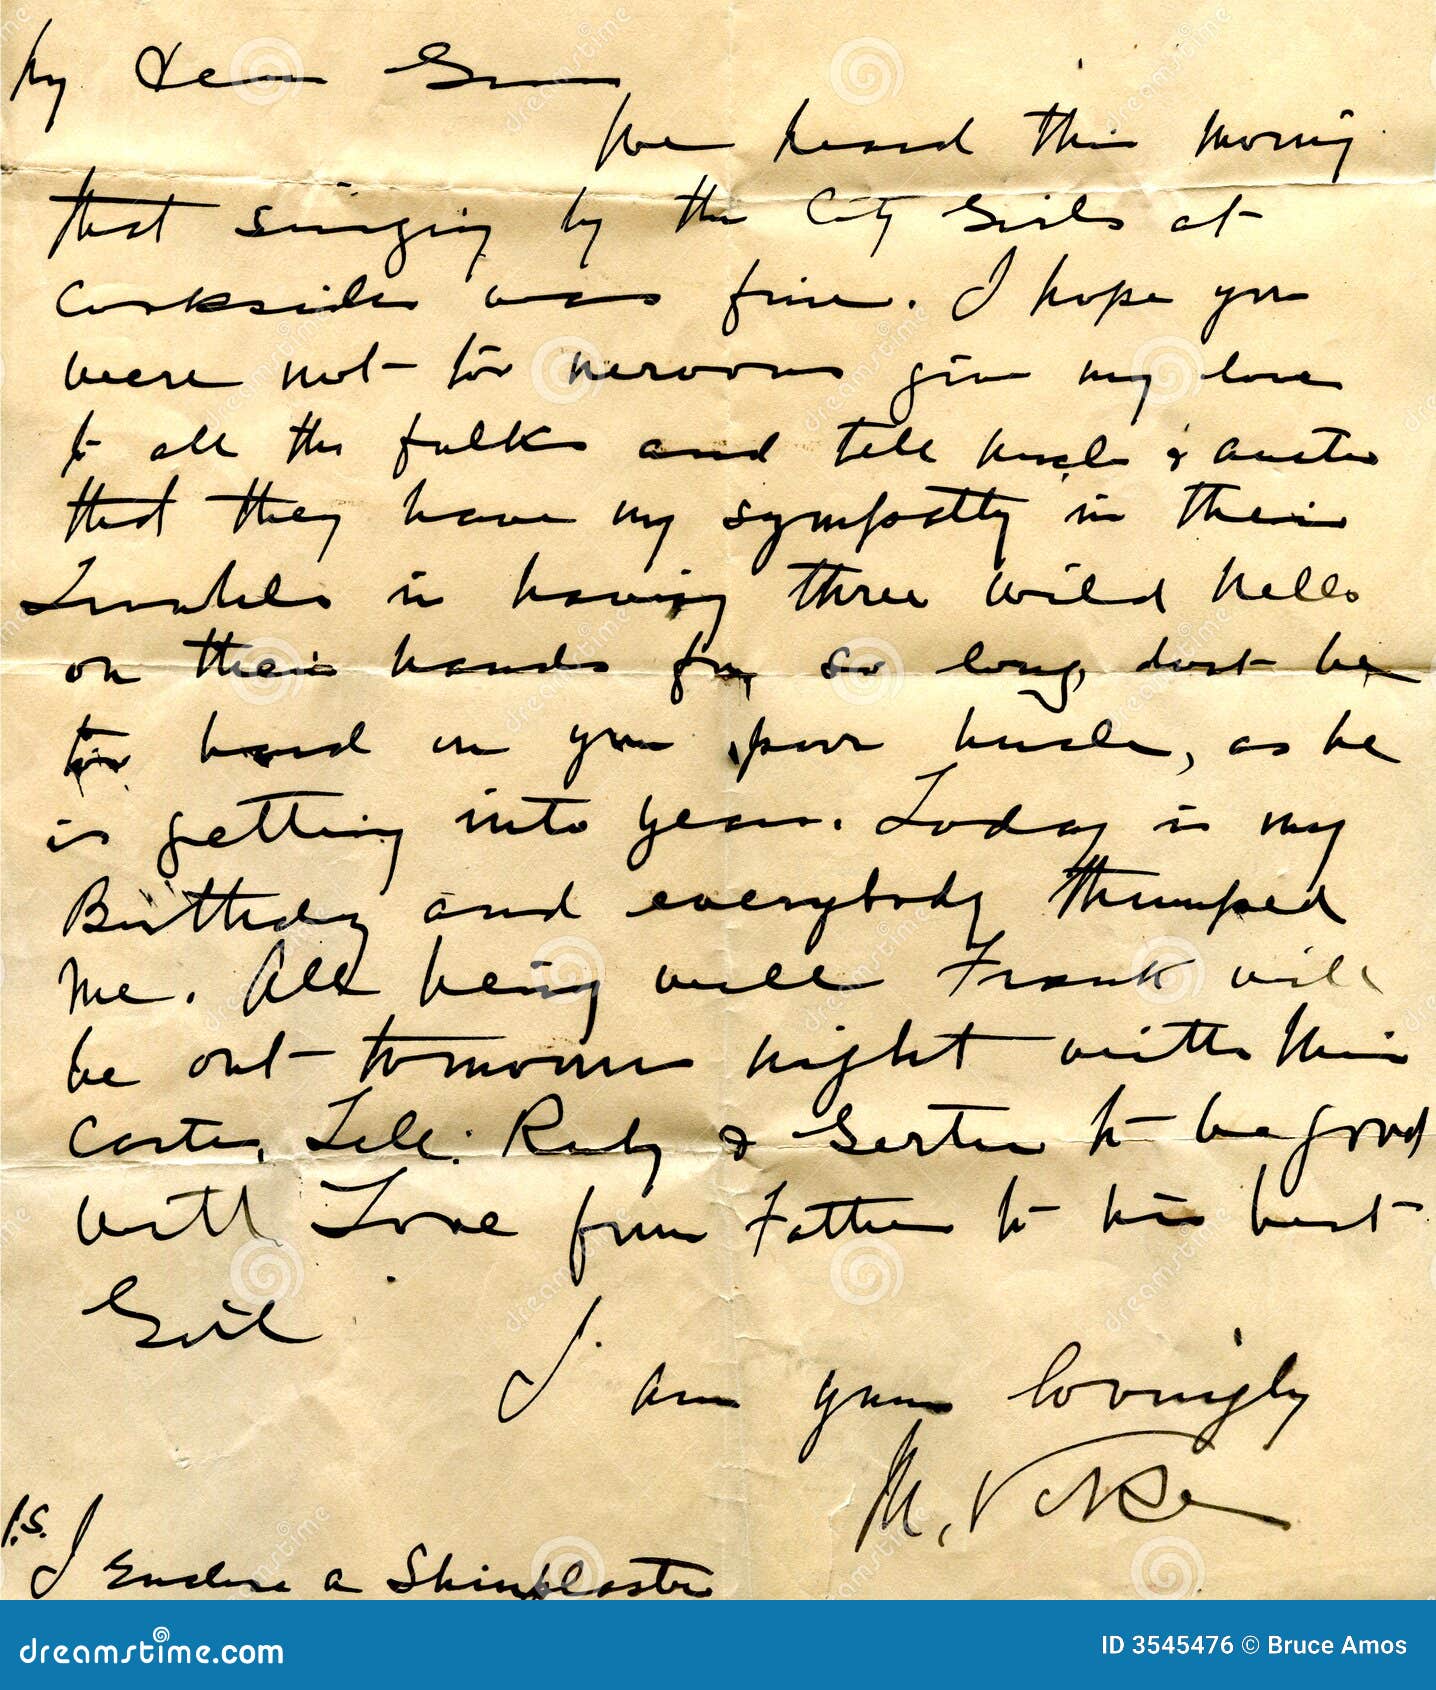 My Dear
We heard this morning
that singing by the City Girls at
was fine. I hope you
were not too nervous give my love
to all the folks and tell Uncle & Auntie
that they have my sympathy in their
Troubles in having three wild hells
on their hands for so long, dont be
too hard on your poor Uncle, as he
is getting into years. Today is my
Birthday and everybody thumped
me. All being well Frank will
be out tomorrow night with Miss
Carter, Tell. Ruby & Gertie to be good
with Love from Father to his best
Girl
I am yours lovingly
M.
P.S.
I Enclose a Shinplaster
dreamstime.com
ID 3545476 © Bruce Amos